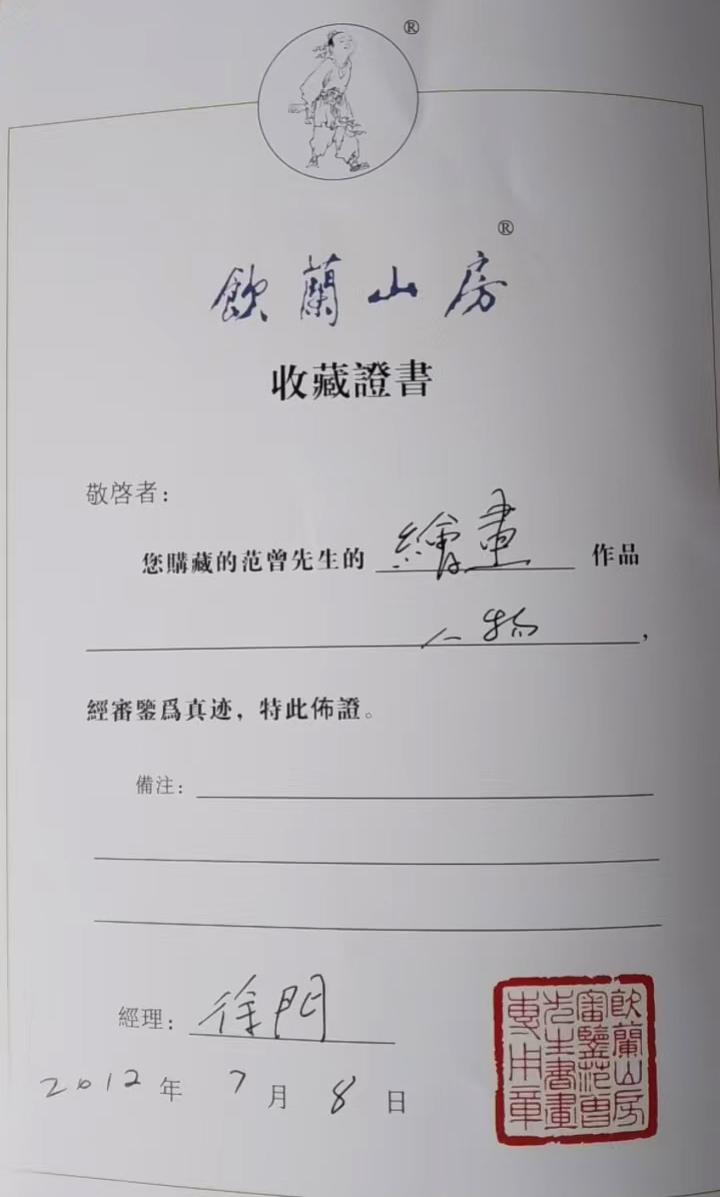 ®
®
飲蘭山房
收藏證書
敬啓者：
您購藏的范曾先生的 繪畫 作品
人物，
經審鑒爲真迹，特此佈證。
備注：
經理：徐
2012年7月8日
飲蘭山房
審鑒范曾
先生書畫
專用章